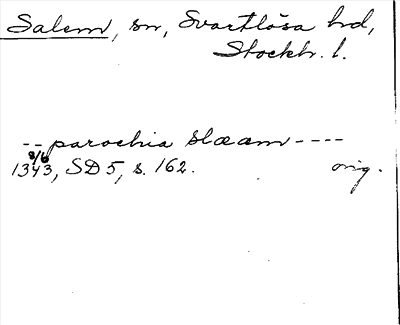 Salem, sn, Svartlösa hrd,
Stockh. l.
-- parochia slææm ----
8/6
1343, SD 5, s. 162. orig.